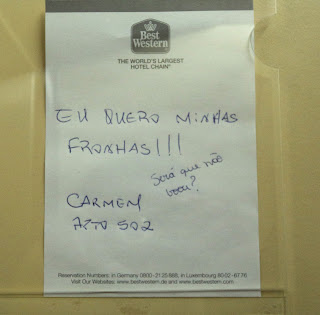 Best
Western
THE WORLD'S LARGEST
HOTEL CHAIN®
EU QUERO MINHAS
FRONHAS!!!
Será que não
voou?
CARMEN
APTO 502
Reservation Numbers: in Germany 0800-21 25 888, in Luxembourg 80 02-67 76
Visit Our Websites: www.bestwestern.de and www.bestwestern.com